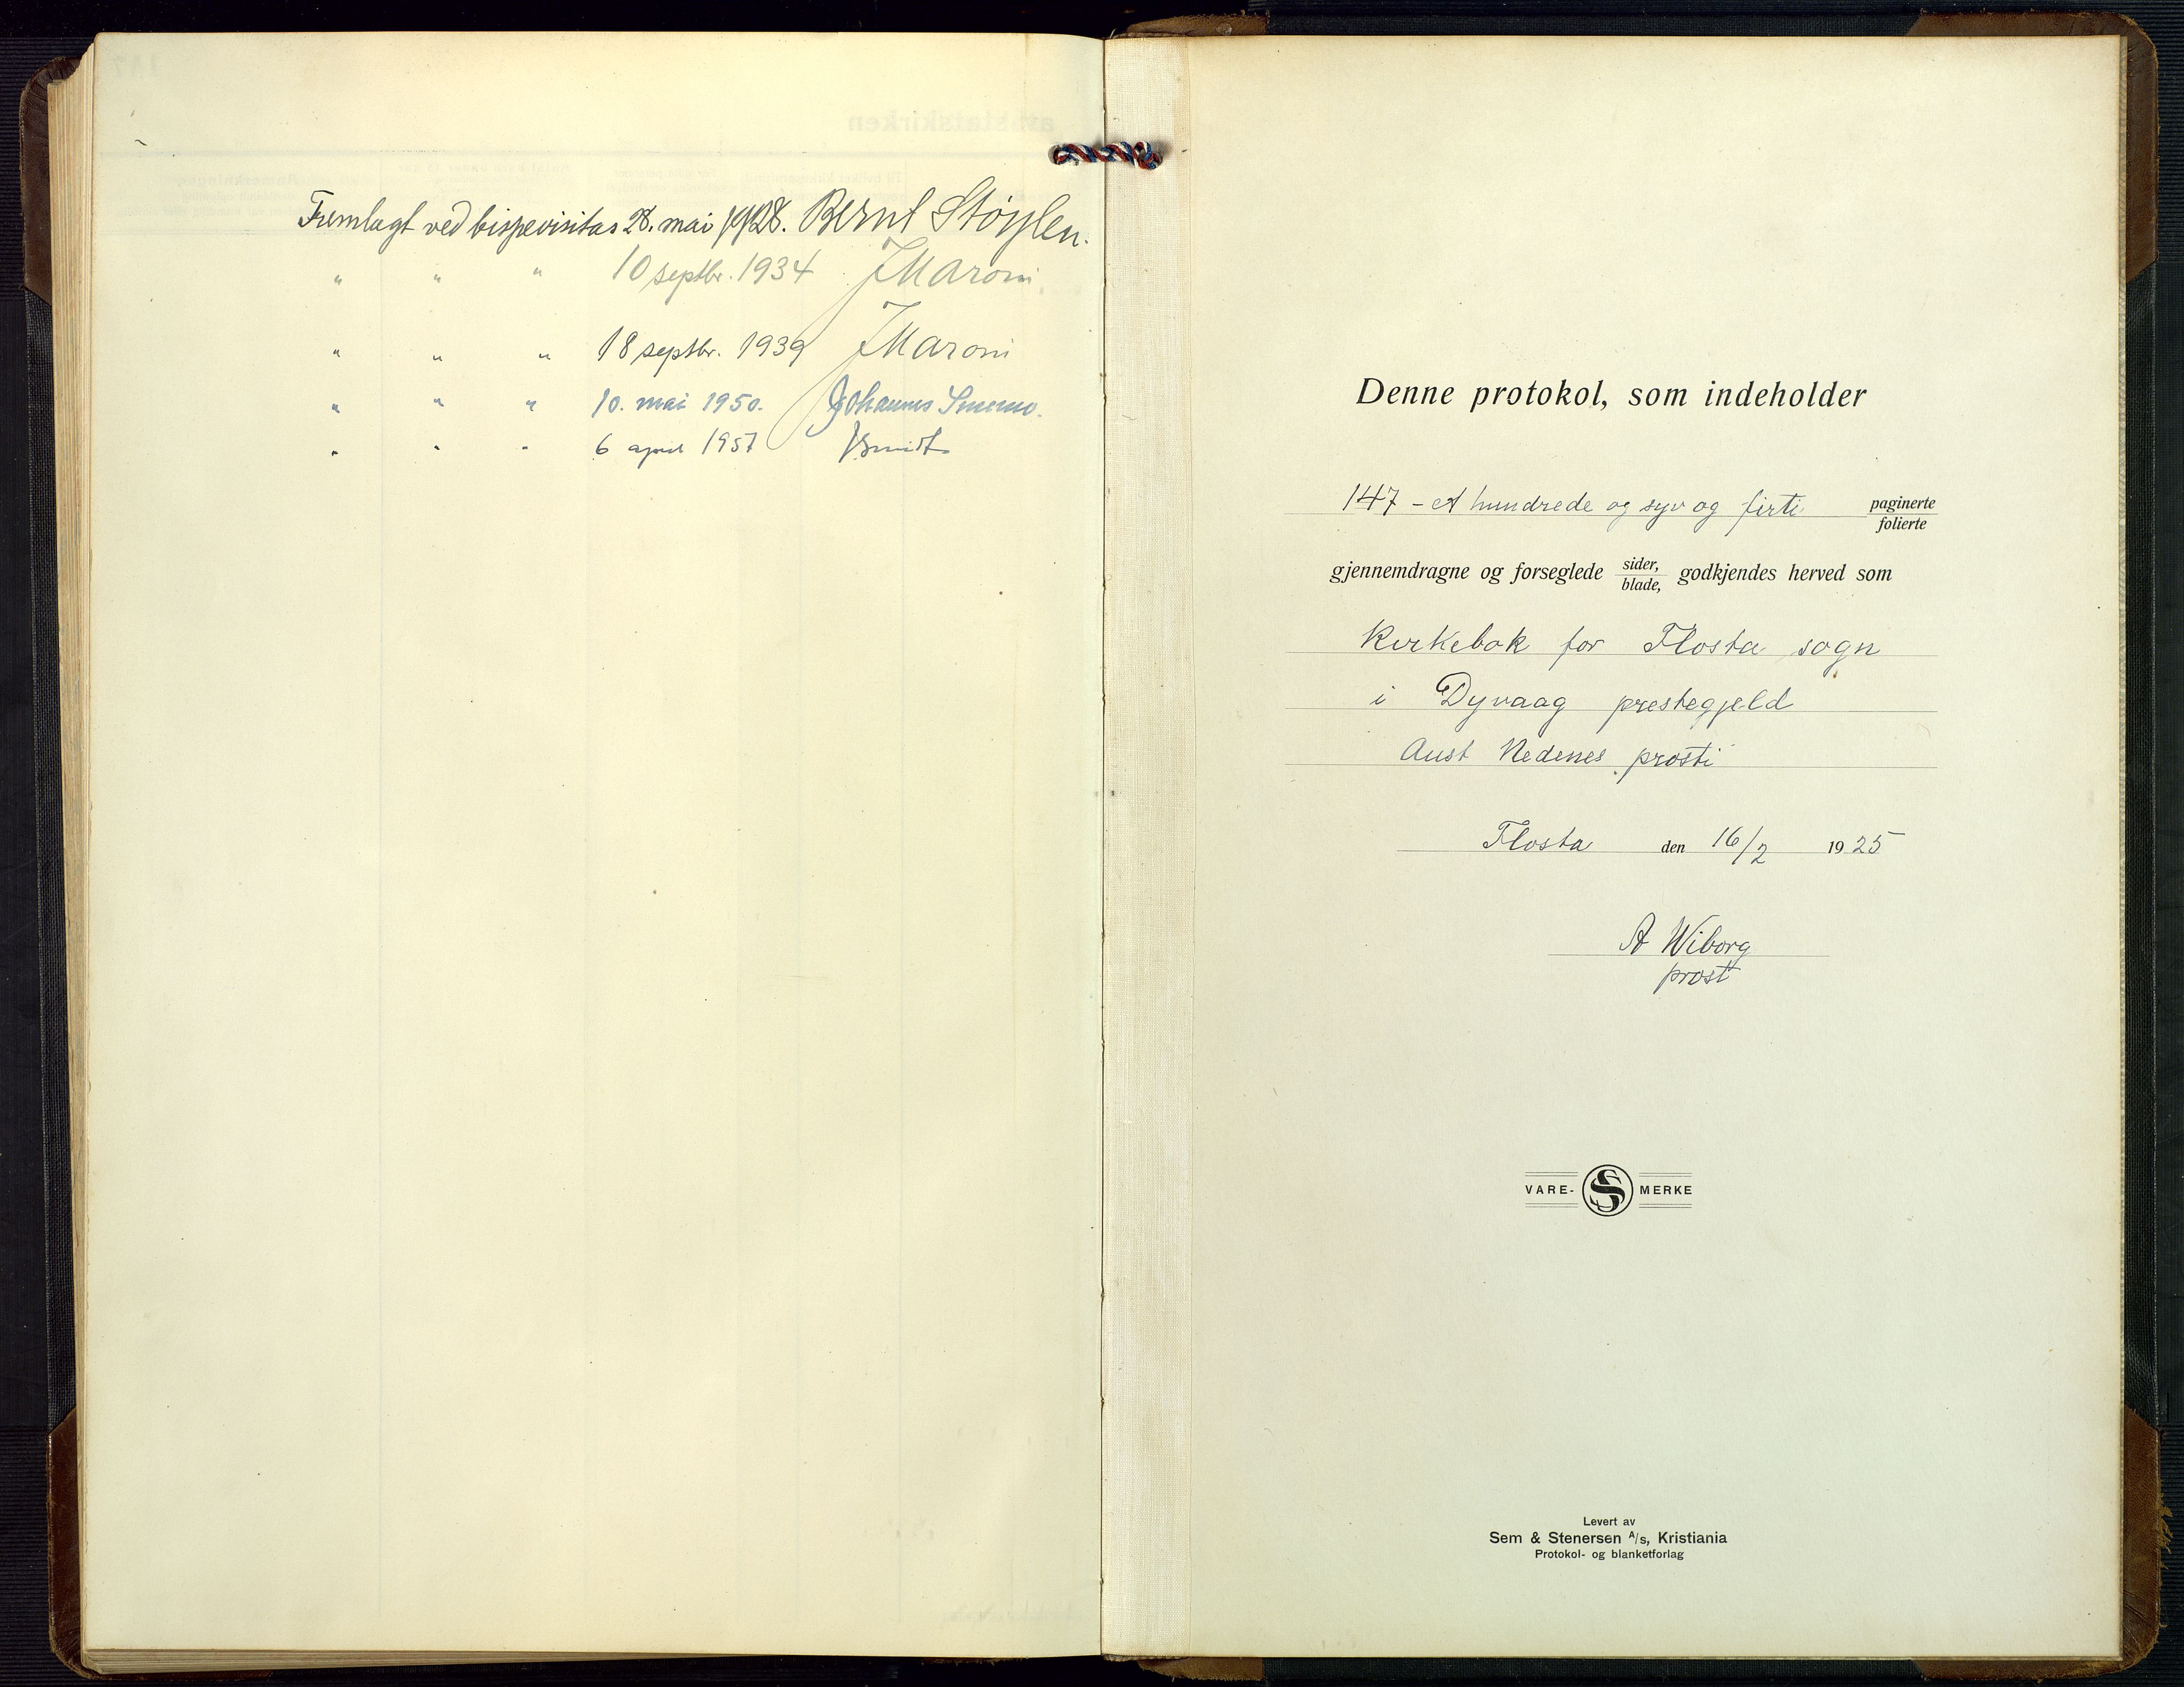 Fremlagt ved bispevisitas 28. mai 1928. Bernt Støylen.
" " " 10 septbr. 1934 JMaroni.
" " " 18 septbr. 1939 JMaroni
" " " 10. mai 1950. Johannes Smemo.
" " " 6 april 1957 JSmidt
Denne protokol, som indeholder
147 - et hundrede og syv og firti paginerte
folierte
gjennemdragne og forseglede sider, godkjendes herved som
blade,
Kirkebok for Flosta sogn
i Dyvaag prestegjeld
Aust Nedenes prosti
Flosta den 16/2 1925
A Wiborg
prost
VARE- S MERKE
Levert av
Sem & Stenersen A/s, Kristiania
Protokol- og blanketforlag